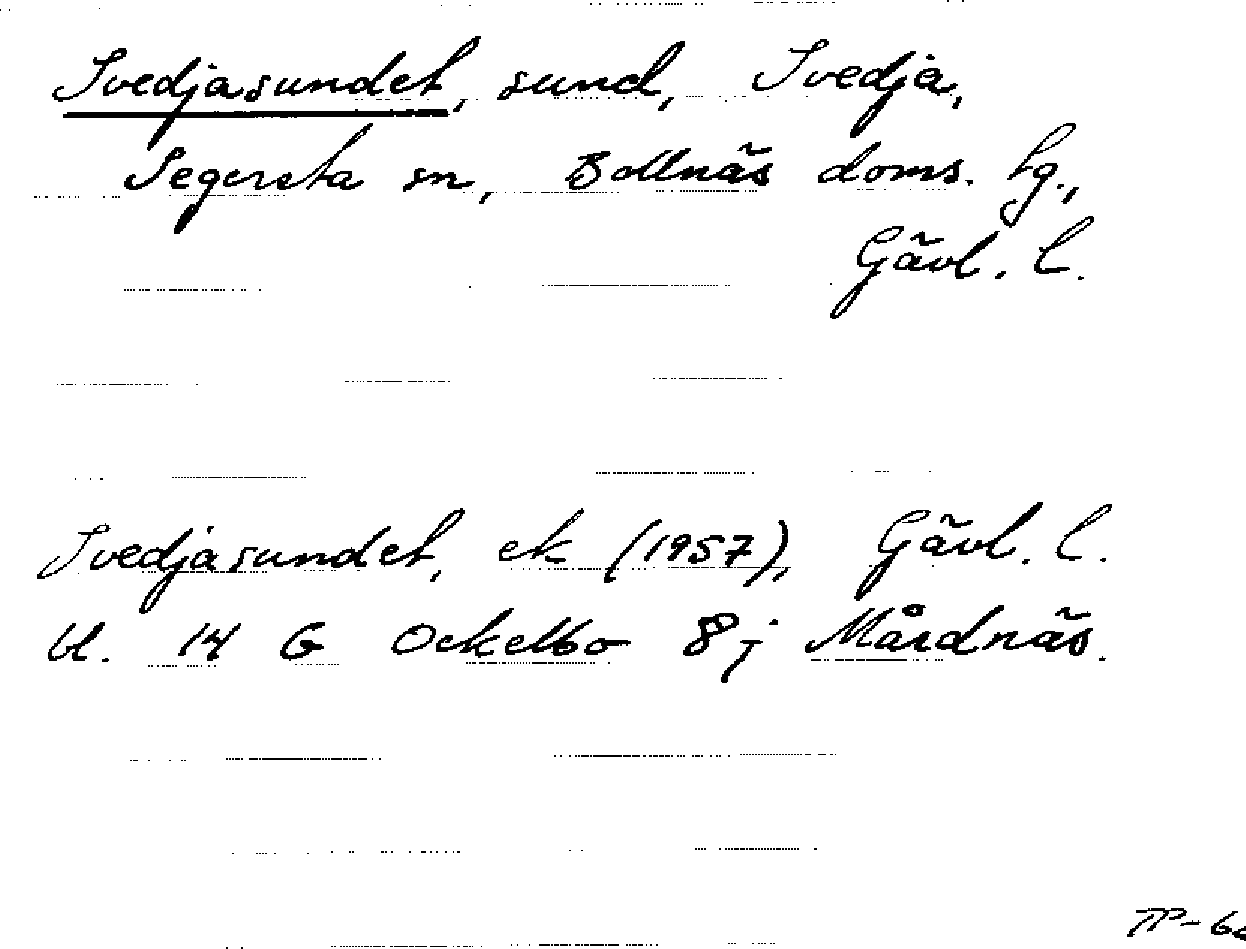 Svedjasundet, sund, Svedja,
Segersta sn, Bollnäs doms. hg.,
Gävl. l.
Svedjasundet, ek (1957), Gävl. l.
bl. 14 G Ockelbo 8j Mårdnäs.